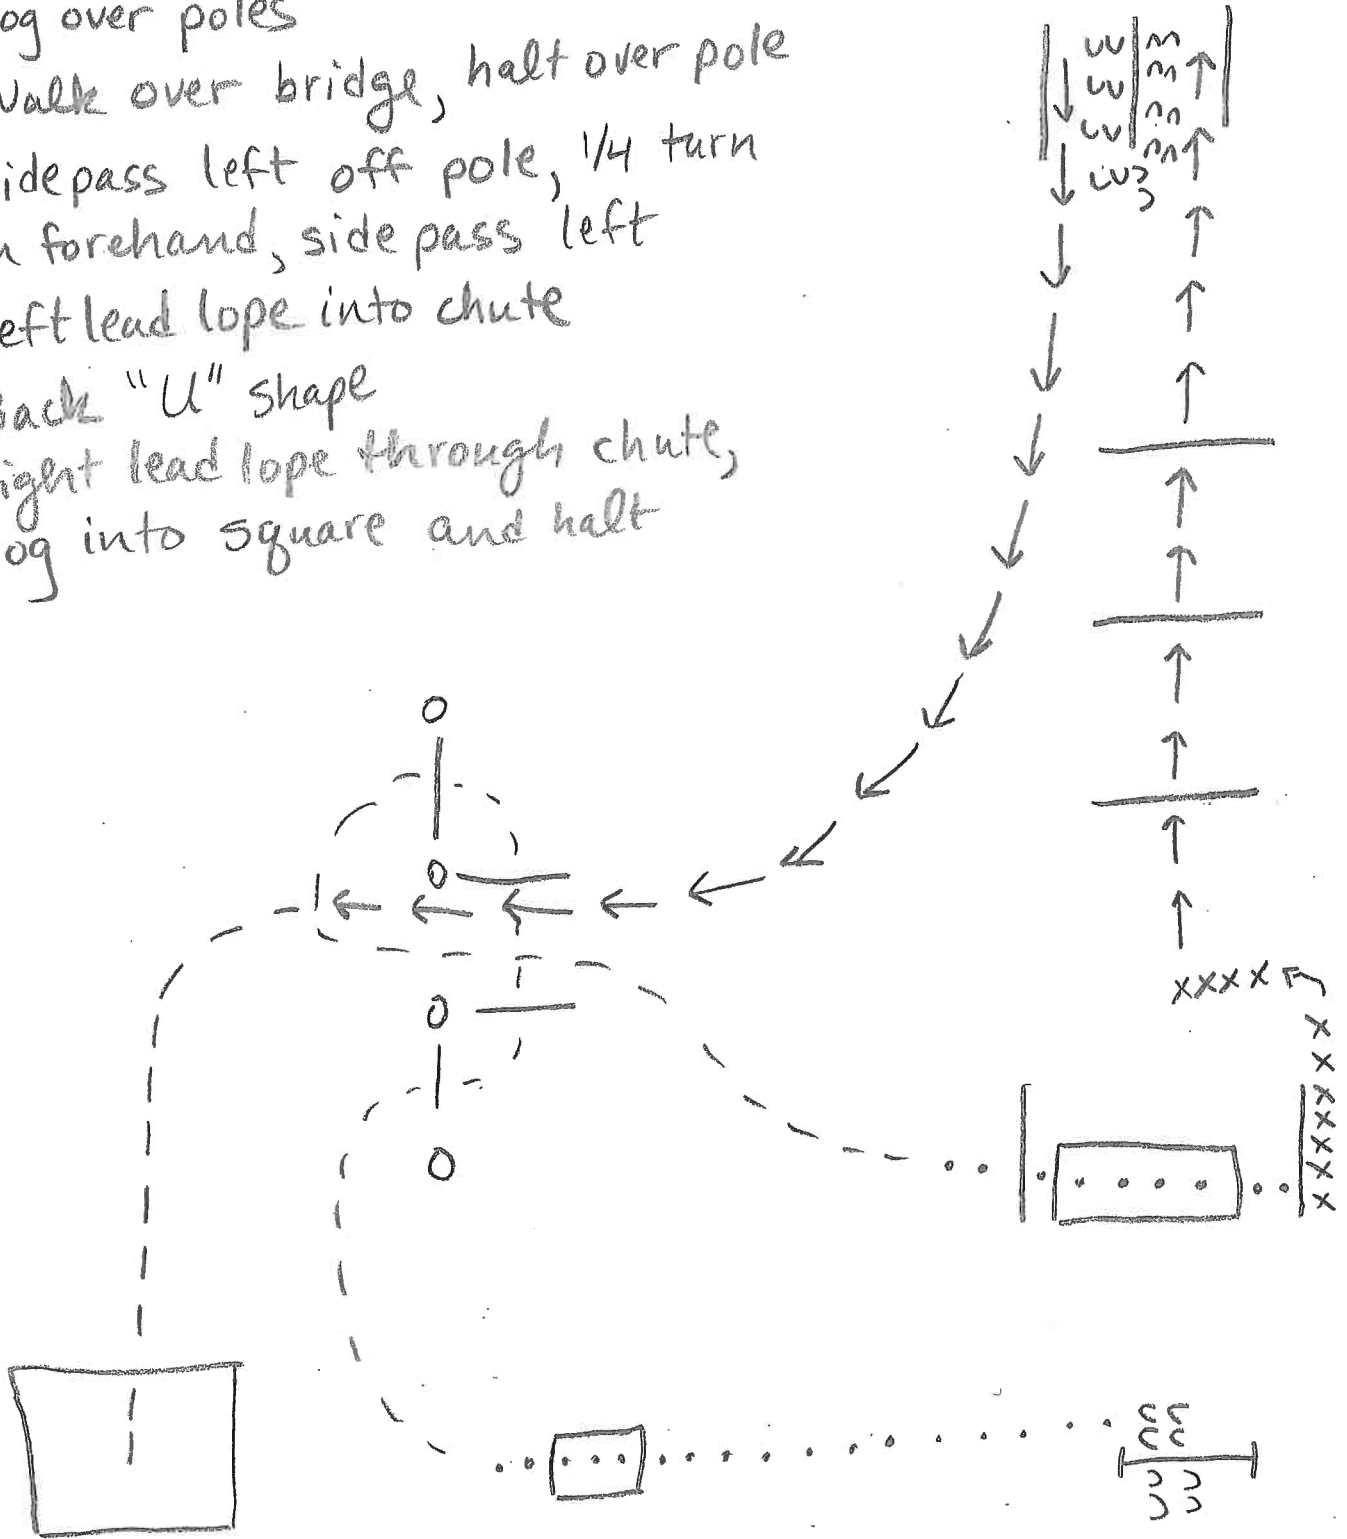 og over poles
Walk over bridge, halt over pole
idepass left off pole, 1/4 turn
n forehand, side pass left
eft lead lope into chute
Back "U" shape
ight lead lope through chute,
og into square and halt